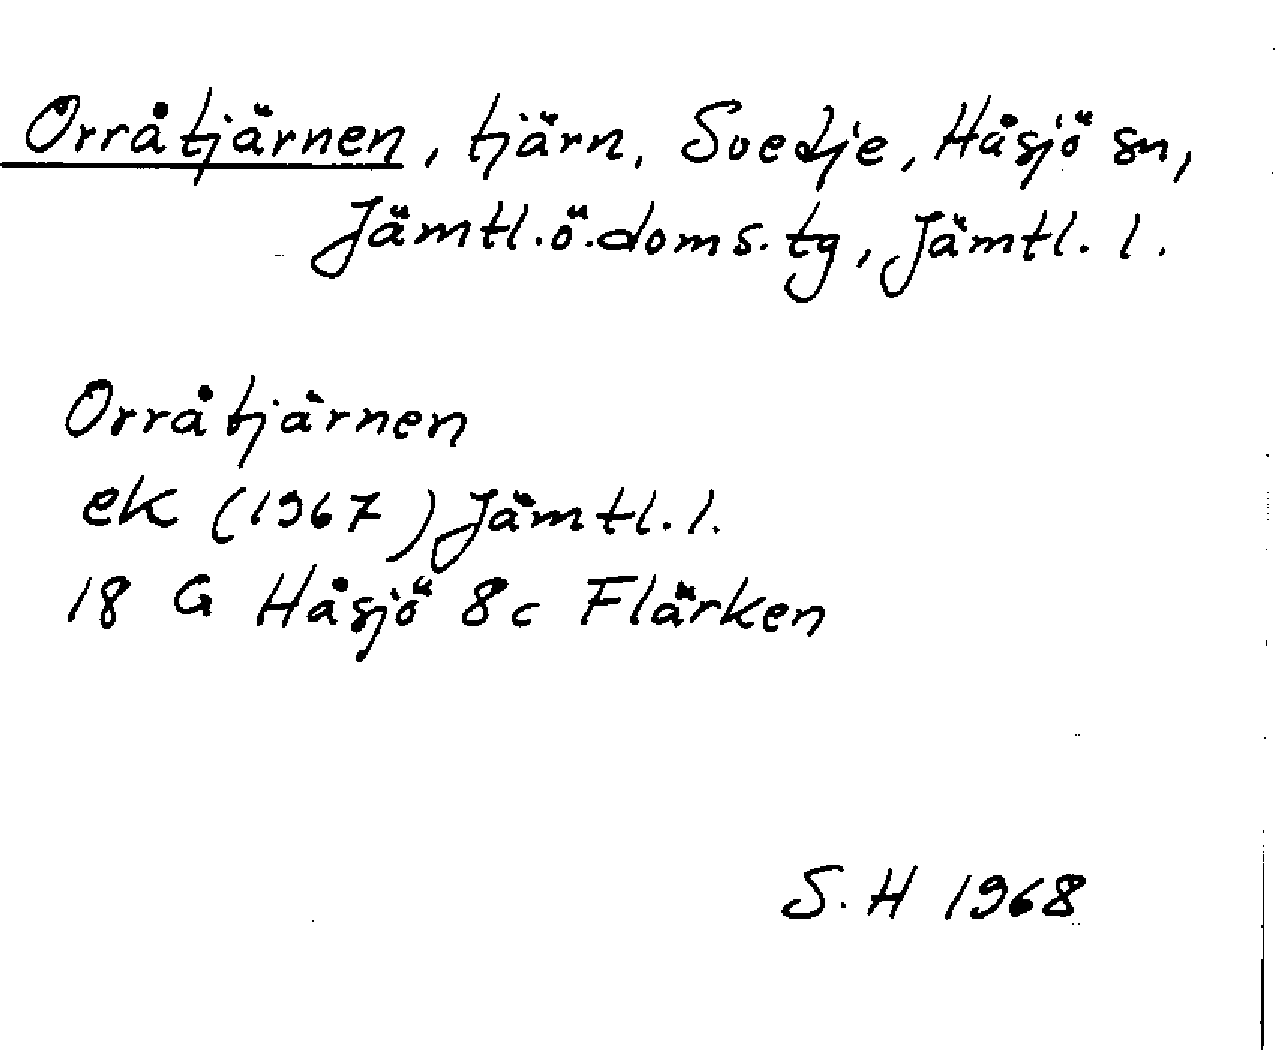 Orråtjärnen, tjärn, Svedje, Håsjö sn,
Jämtl.ö.doms.tg, Jämtl. l.
Orråtjärnen
ek (1967) Jämtl. l.
18 G Håsjö 8c Flärken
S. H 1968